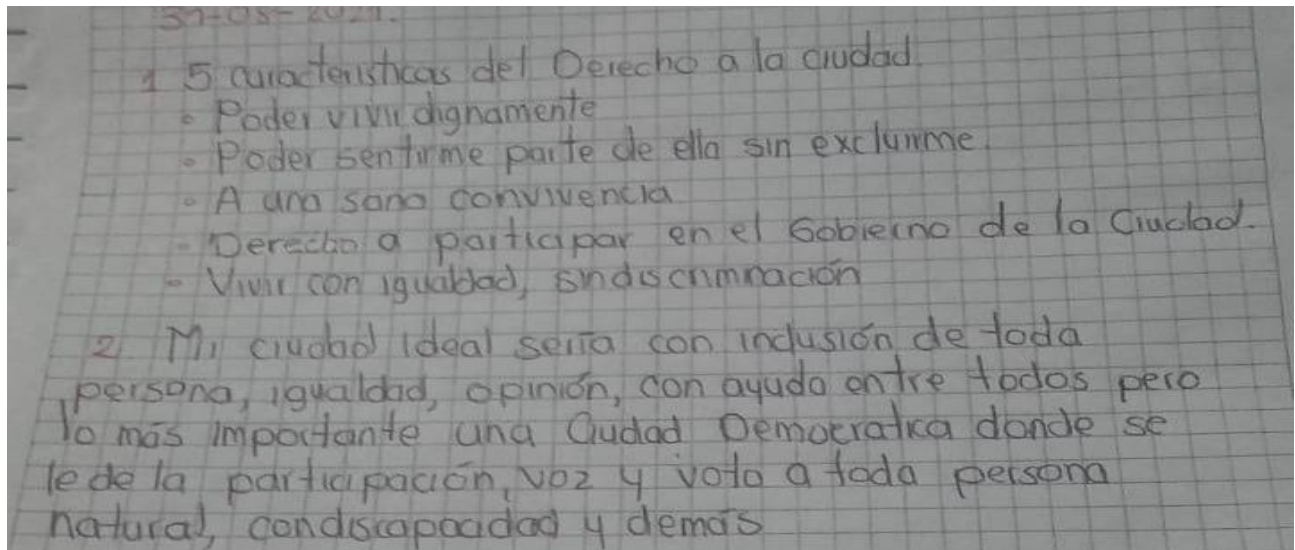 31-05-2021.
1 5 caracteristicas del Derecho a la ciudad.
• Poder vivir dignamente
• Poder sentirme parte de ella sin excluirme.
• A una sana convivencia
- Derecho a participar en el Gobierno de la Ciudad.
- Vivir con igualdad, sin discriminación
2 Mi ciudad ideal seria con inclusión de toda
persona, igualdad, opinión, con ayuda entre todos pero
lo más importante una Ciudad Democratica donde se
le de la participación, voz y voto a toda persona
natural, con discapacidad y demás